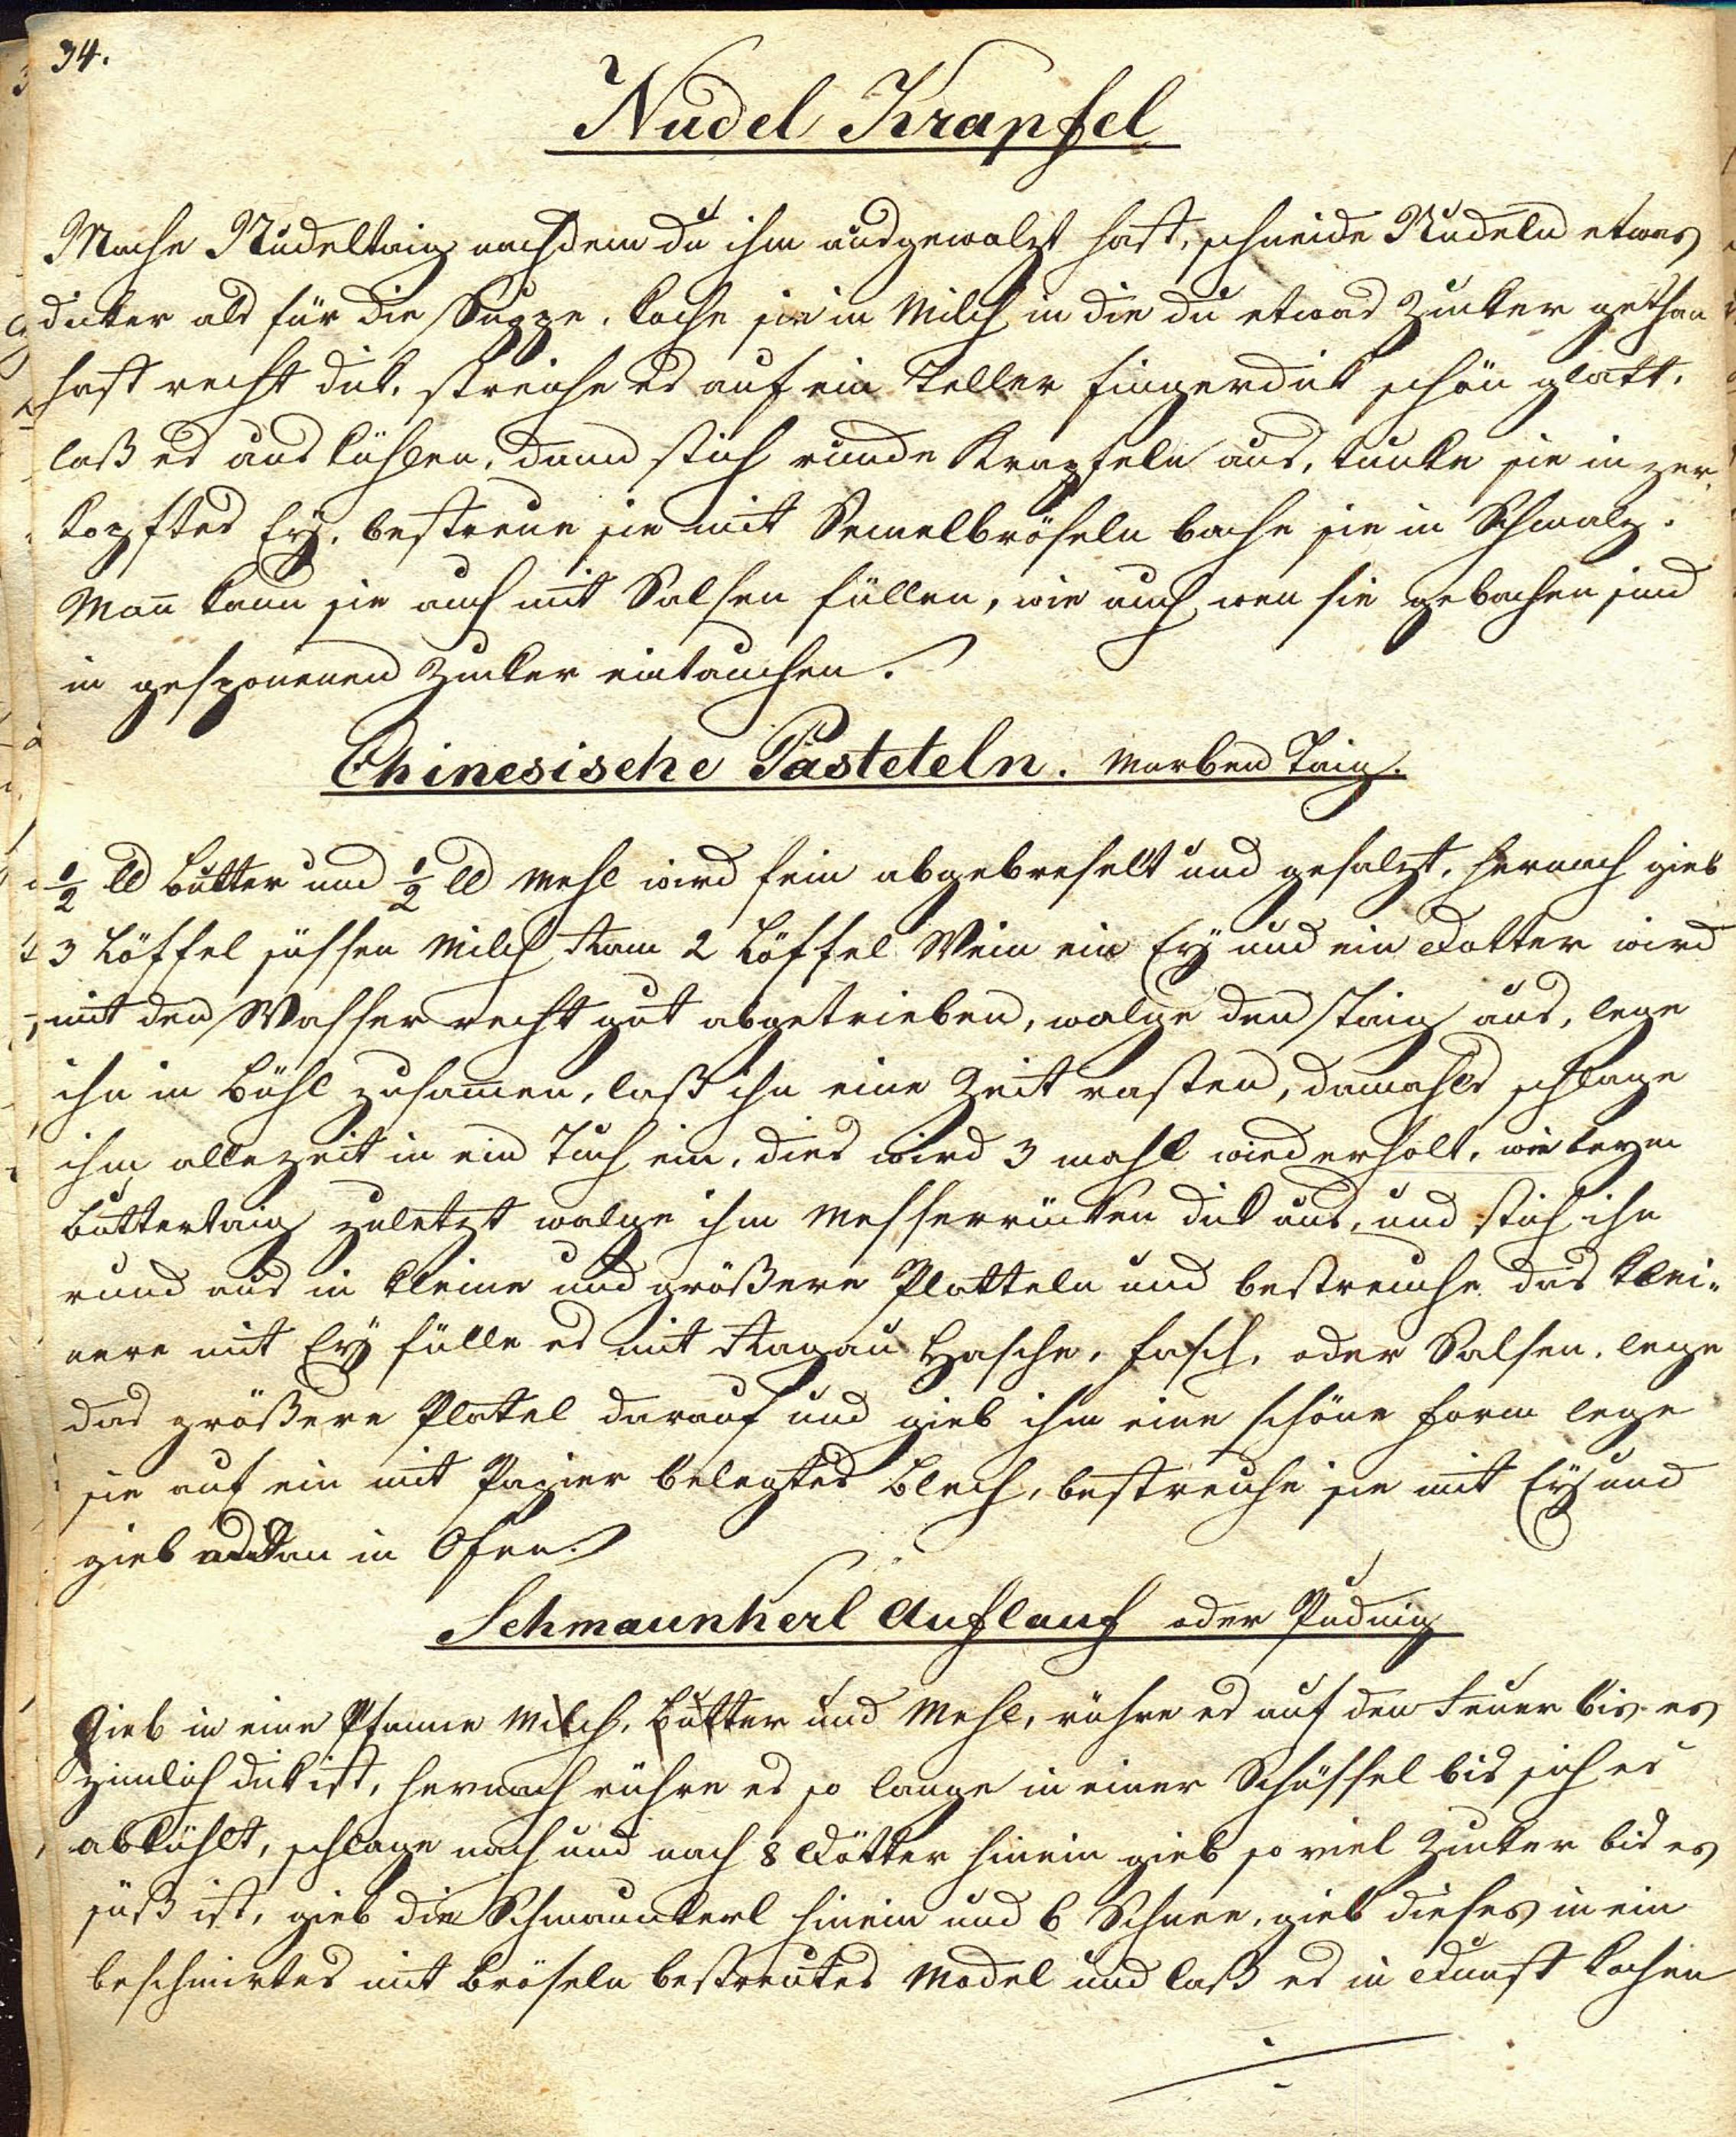 34.
Nudel Krapfel
Mache Nudeltaig nachdem du ihm ausgewalzt hast, schneide Nudeln etwas
dicker als für die Suppe. koche sie in Milch in die du etwas Zucker gethan
hast recht dick. streiche es auf ein Teller fingerdick schön glatt.
laß es aus kühlen, dann stich runde Krapfeln aus, tunke sie in zer
kopftes Ey. bestreue sie mit Semelbröseln bache sie in Schmalz.
Man̄ kann sie auch mit Salsen füllen, wie auch wen sie gebachen sind
in gesponenen Zucker eintauchen.
Chinesische Pasteteln. Marben Taig.
½ ℔ Butter und ½ ℔ Mehl wird fein abgebreselt und gesalzt, hernach gieb
3 Löffel süssen Milch Ram 2 Löffel Wein ein Ey und ein Dotter wird
mit den Wasser recht gut abgetrieben, walge den Taig aus, lege
ihn in Böhl zusam̄en, laß ihn eine Zeit rasten, damahls schlage
ihm allezeit in ein Tuch ein, dies wird 3 mahl wiederholt, wie beym
Buttertaig zuletzt walge ihm Messerrücken dick aus, und stich ihn
rund aus in kleine und größere Platteln und bestreiche das klei-
nere mit Ey fülle es mit Ragau Hasche, Fasch, oder Salsen. lege
das größere Platel darauf und gieb ihm eine schöne Form lege
sie auf ein mit Papier belegtes Blech, bestreiche sie mit Ey und
gieb in Ofen.
Schmaunkerl Auflauf oder Puding
Gieb in eine Pfanne Milch, Butter und Mehl, rühre es auf den Feuer bis es
zimlich dick ist, hernach rühre es so lange in einer Schüssel bis sich es
abkühlt, schlage nach und nach 8 Dötter hinein gieb so viel Zucker bis es
süß ist, gieb die Schmaunkerl hinein und 6 Schnee, gieb dieses in ein
beschmirtes mit Bröseln bestreutes Model und laß es in Dunst kochen